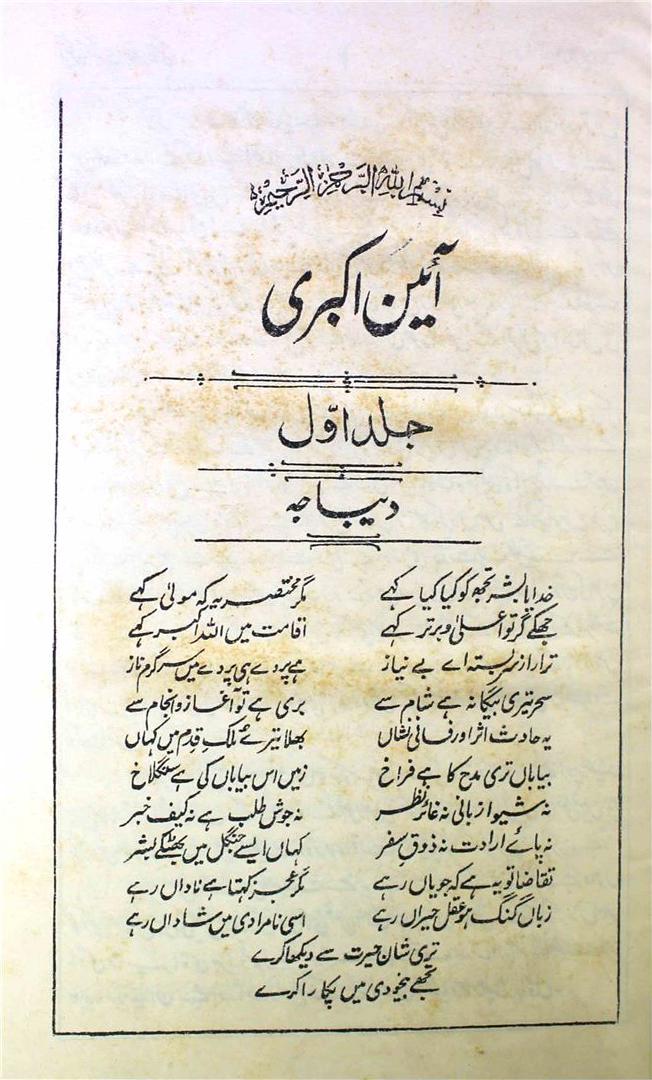 بسم اللہ الرحمن الرحیم
آئین اکبری
جلد اوّل
دیباچہ
خدایا بشر تجھ کو کیا کیا کہے مگر مختصر یہ کہ مولیٰ کہے
جھکے گر تو اعلیٰ و برتر کہے اقامت میں اللہ اکبر کہے
ترا راز سربستہ اے بے نیاز ہے پردے ہی پردے میں سرگرم ناز
سحر تیری بیگانہ ہے شام سے بری ہے تو آغاز و انجام سے
یہ حادث اثر اور فانی نشاں بھلا تیرے ملکِ قِدم میں کہاں
بیاباں تری مدح کا ہے فراخ زمیں اس بیاباں کی ہے سنگلاخ
نہ شیوا زبانی نہ غائر نظر نہ جوش طلب ہے نہ کیف خبر
نہ پائے ارادت نہ ذوقِ سفر کہاں ایسے جنگل میں بھٹکے بشر
تقاضا تو یہ ہے کہ جویاں رہے مگر عجز کہتا ہے ناداں رہے
زباں گنگ ہو عقل حیراں رہے اسی نامرادی میں شاداں رہے
تری شان حیرت سے دیکھا کرے
تجھے بیخودی میں پکارا کرے